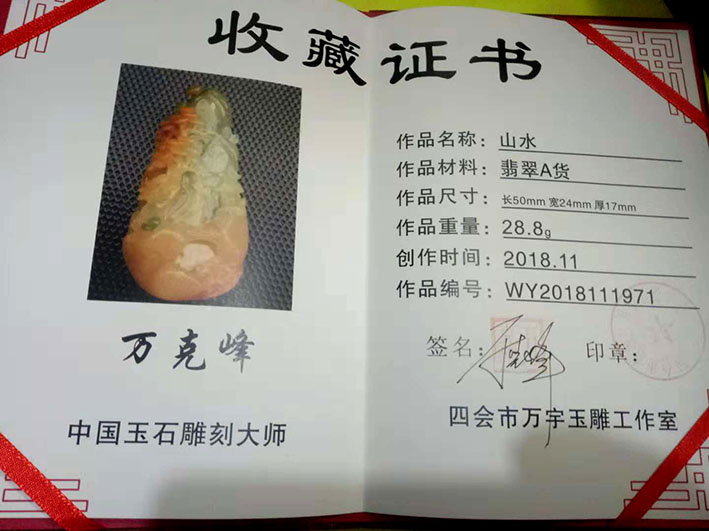 收藏证书
万克峰
中国玉石雕刻大师
作品名称：山水
作品材料：翡翠A货
作品尺寸：长50mm 宽24mm 厚17mm
作品重量：28.8g
创作时间：2018.11
作品编号：WY2018111971
签名： 印章：
四会市万宇玉雕工作室